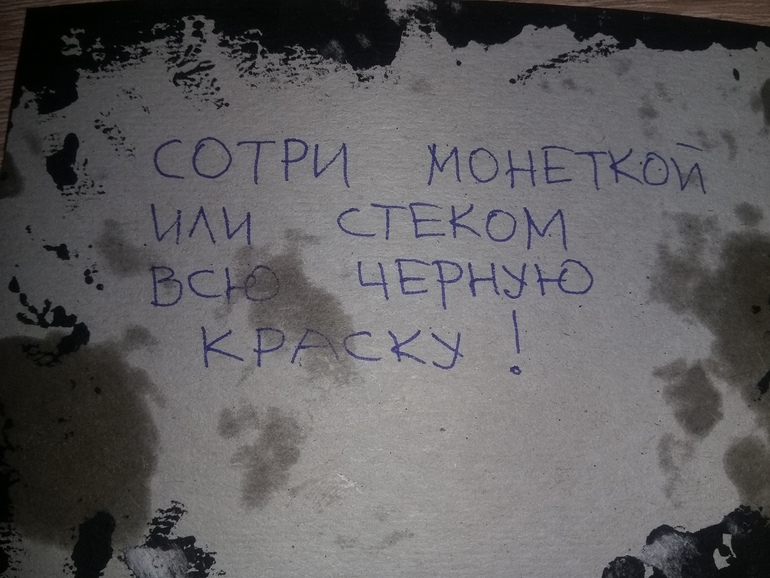 СОТРИ МОНЕТКОЙ
ИЛИ СТЕКОМ
ВСЮ ЧЕРНУЮ
КРАСКУ!